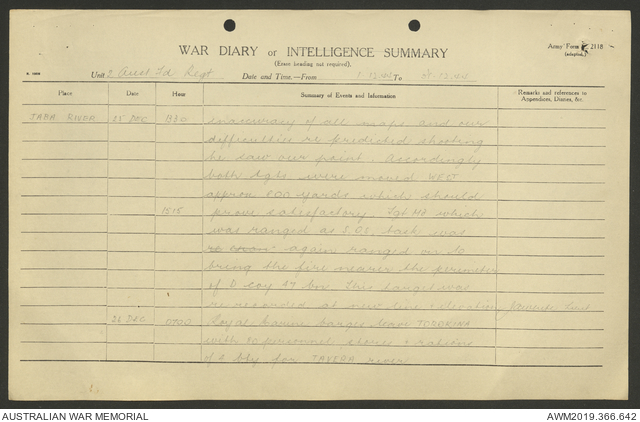 WAR DIARY or INTELLIGENCE SUMMARY
Army Form C 2118
(adapted.)
(Erase heading not required).
Unit 2 Aust Fd Regt
Date and Time.—From 1.12.44 To 31.12.44
Place Date Hour Summary of Events and Information Remarks and references to
Appendices, Diaries, &c.
JABA RIVER 25 DEC 1330 inaccuracy of all maps and our
difficulties re predicted shooting
he saw our point. Accordingly
both tgts were moved WEST
approx 800 yards which should
1515 prove satisfactory. Tgt M3 which
was ranged as S.O.S. task was
again ranged on to
bring the fire nearer the perimeter
of D coy 47 bn. This target was
re recorded at new line & elevation
26 DEC 0700 barges leave TOROKINA
with 20 personnel stores & rations
of 4 bty for TAVERA river
AUSTRALIAN WAR MEMORIAL
AWM2019.366.642